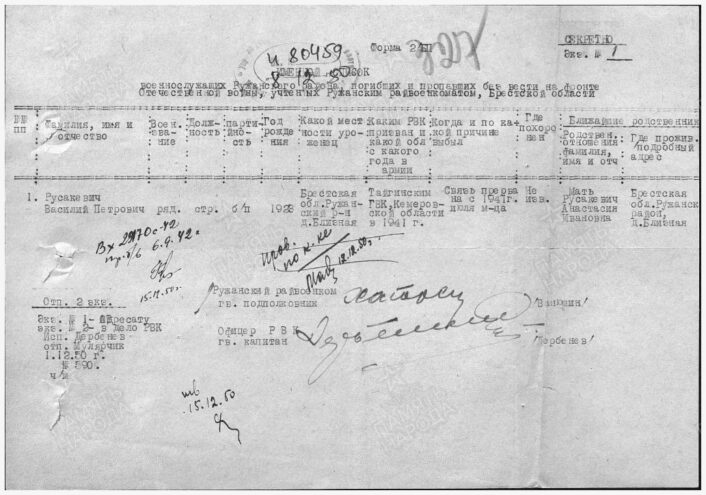 СЕКРЕТНО
Экз. № 1
Форма 2/БП
и. 80459
8 12 50
ИМЕННОЙ СПИСОК
военнослужащих Ружанского района, погибших и пропавших без вести на фронте
Отечественной войны, учтенных Ружанским райвоенкоматом, Брестской области
№№ пп
Фамилия, имя и отчество
Воен. зва- ние
Долж- ность
парти- йно- сть
Год рожде ния
Какой мест ности уро- женец
Каким РВК призван и какой обл с какого года в армии
Когда и по ка- кой причине выбыл
Где похоро- нен
Ближайшие родственник
Родствен. отношения фамилия, имя и отч
Где прожив. подробный адрес
1. Русакевич Василий Петрович
ряд.
стр.
б/п
1923
Брестская обл.Ружан- ский р-н д.Близная
Тайгинским РВК,Кемеров- ской области в 1941 г.
Связь прерва на с 1941г. июля м-ца
Не изв.
Мать Русакевич Анастасия Ивановна
Брестская обл.Ружанск район, д.Близная
6.9.42г.
15.12.50г.
Пров. по к-ке
12.12.50г.
Ружанский райвоенком
гв. подполковник
Офицер РВК
гв. капитан
/Дербенев/
Отп. 2 экз.
Экз. № 1- Адресату
экз. № 2- в Дело РВК
Исп. Дербенев
отп. Мулярчик
1.12.50 г.
№ 890.
15.12.50
ПАМЯТЬ НАРОДА